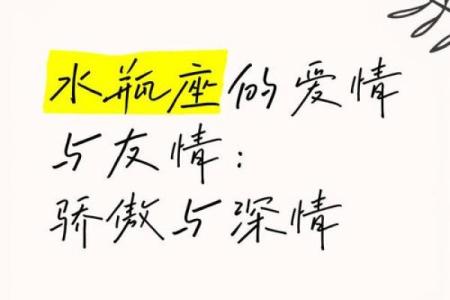 水瓶座的爱情
与友情:
骄傲与深情